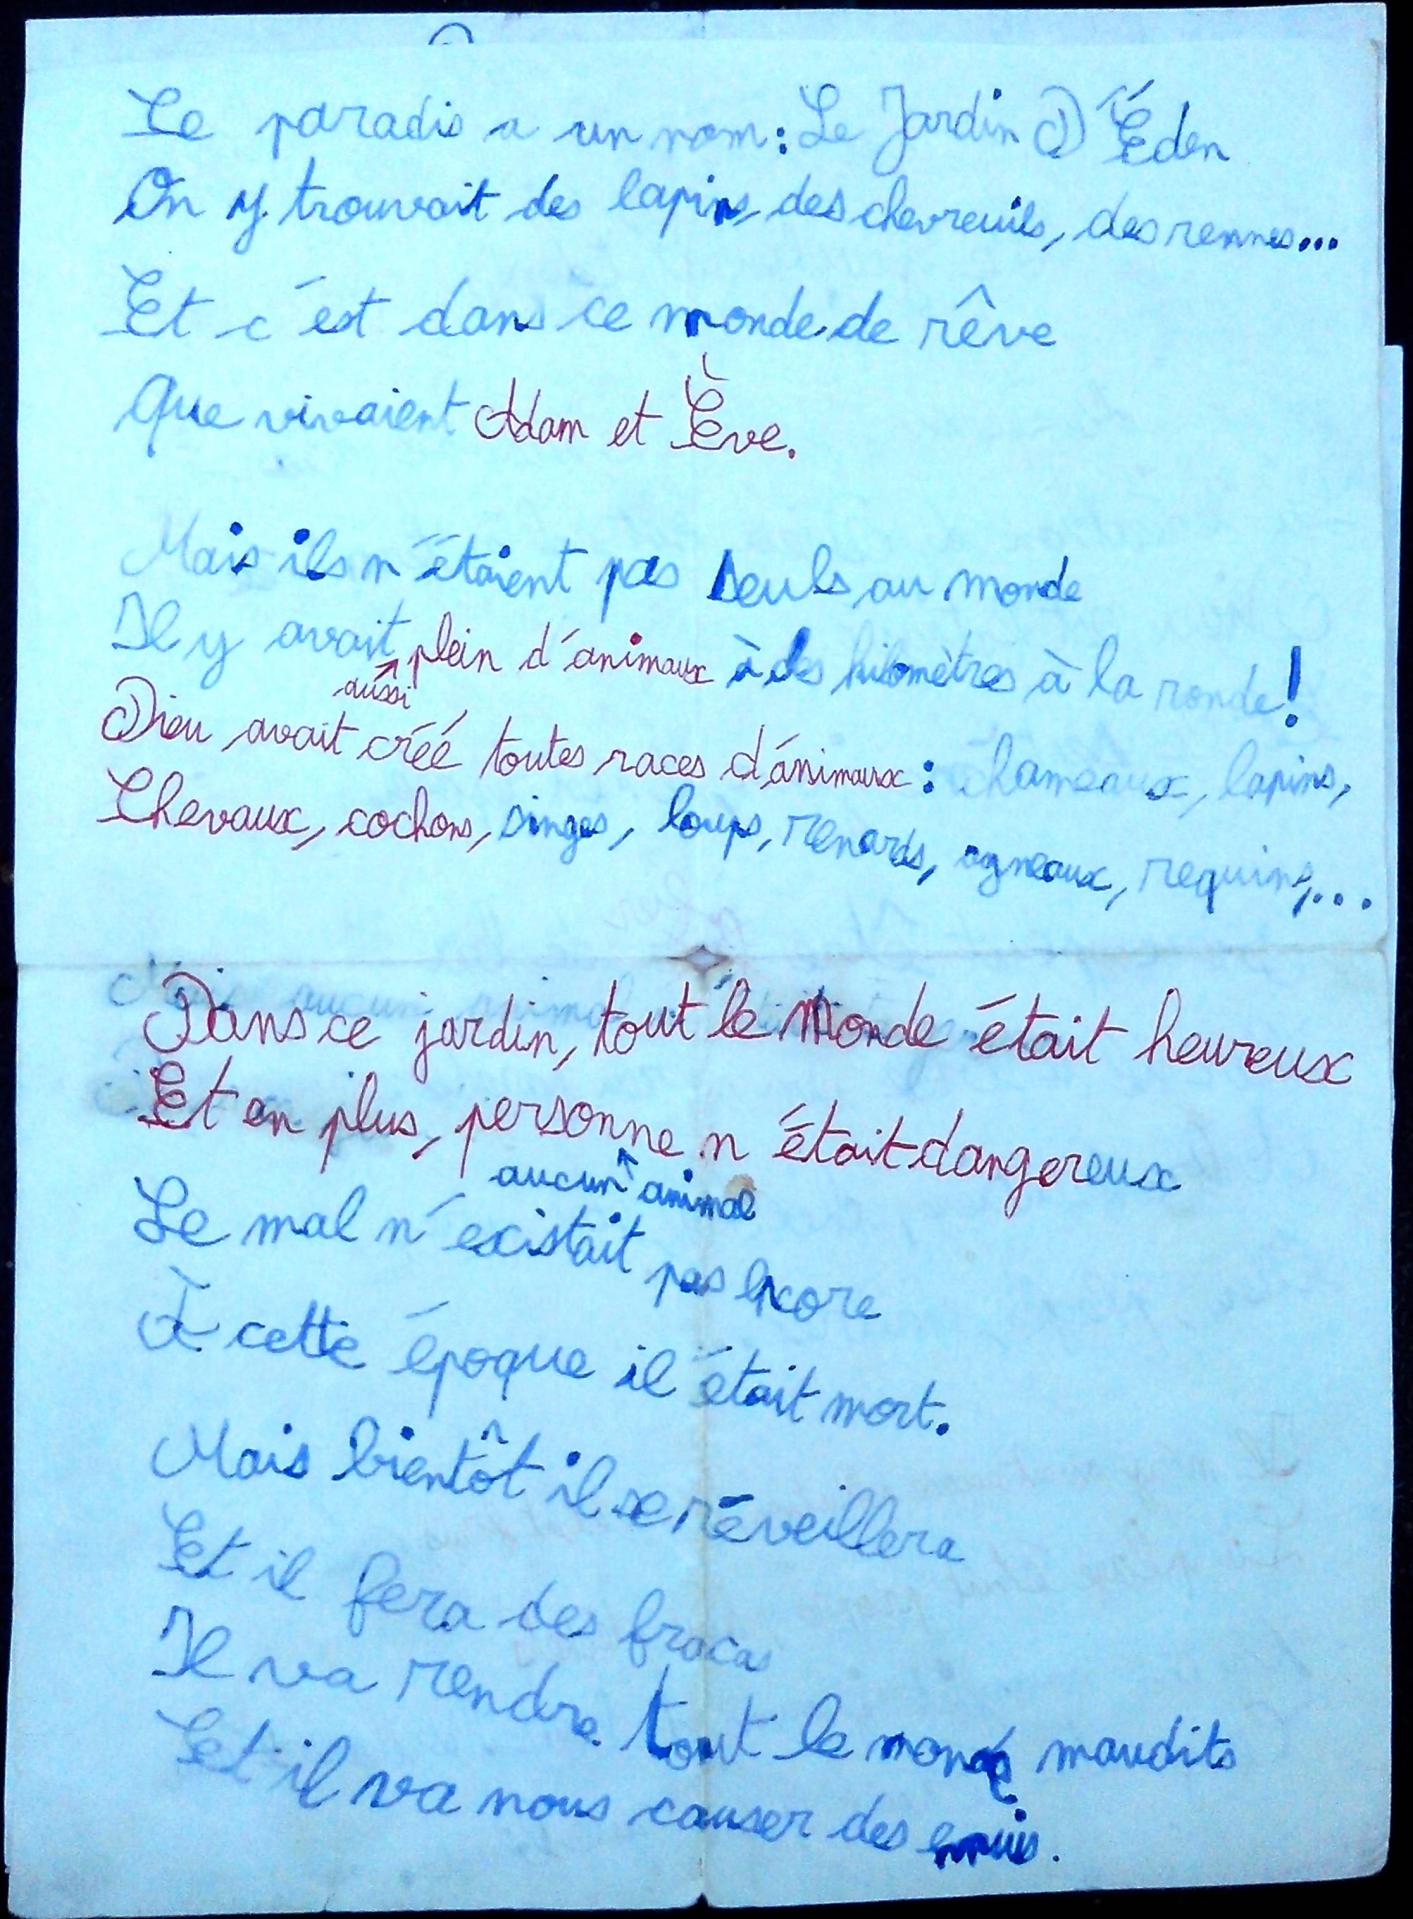 Le paradis a un nom : Le Jardin D'Éden
On y trouvait des lapins, des chevreuils, des rennes...
Et c'est dans ce monde de rêve
Que vivaient Adam et Ève.
Mais ils n'étaient pas seuls au monde
Il y avait plein d'animaux à des kilomètres à la ronde !
aussi
Dieu avait créé toutes races d'animaux : chameaux, lapins,
Chevaux, cochons, singes, loups, renards, agneaux, requins,...
Dans ce jardin, tout le Monde était heureux
Et en plus, personne n'était dangereux
aucun animal
Le mal n'existait pas encore
À cette époque il était mort.
Mais bientôt il se réveillera
Et il fera des fracas
Il va rendre tout le monde maudits
Et il va nous causer des ennuis.